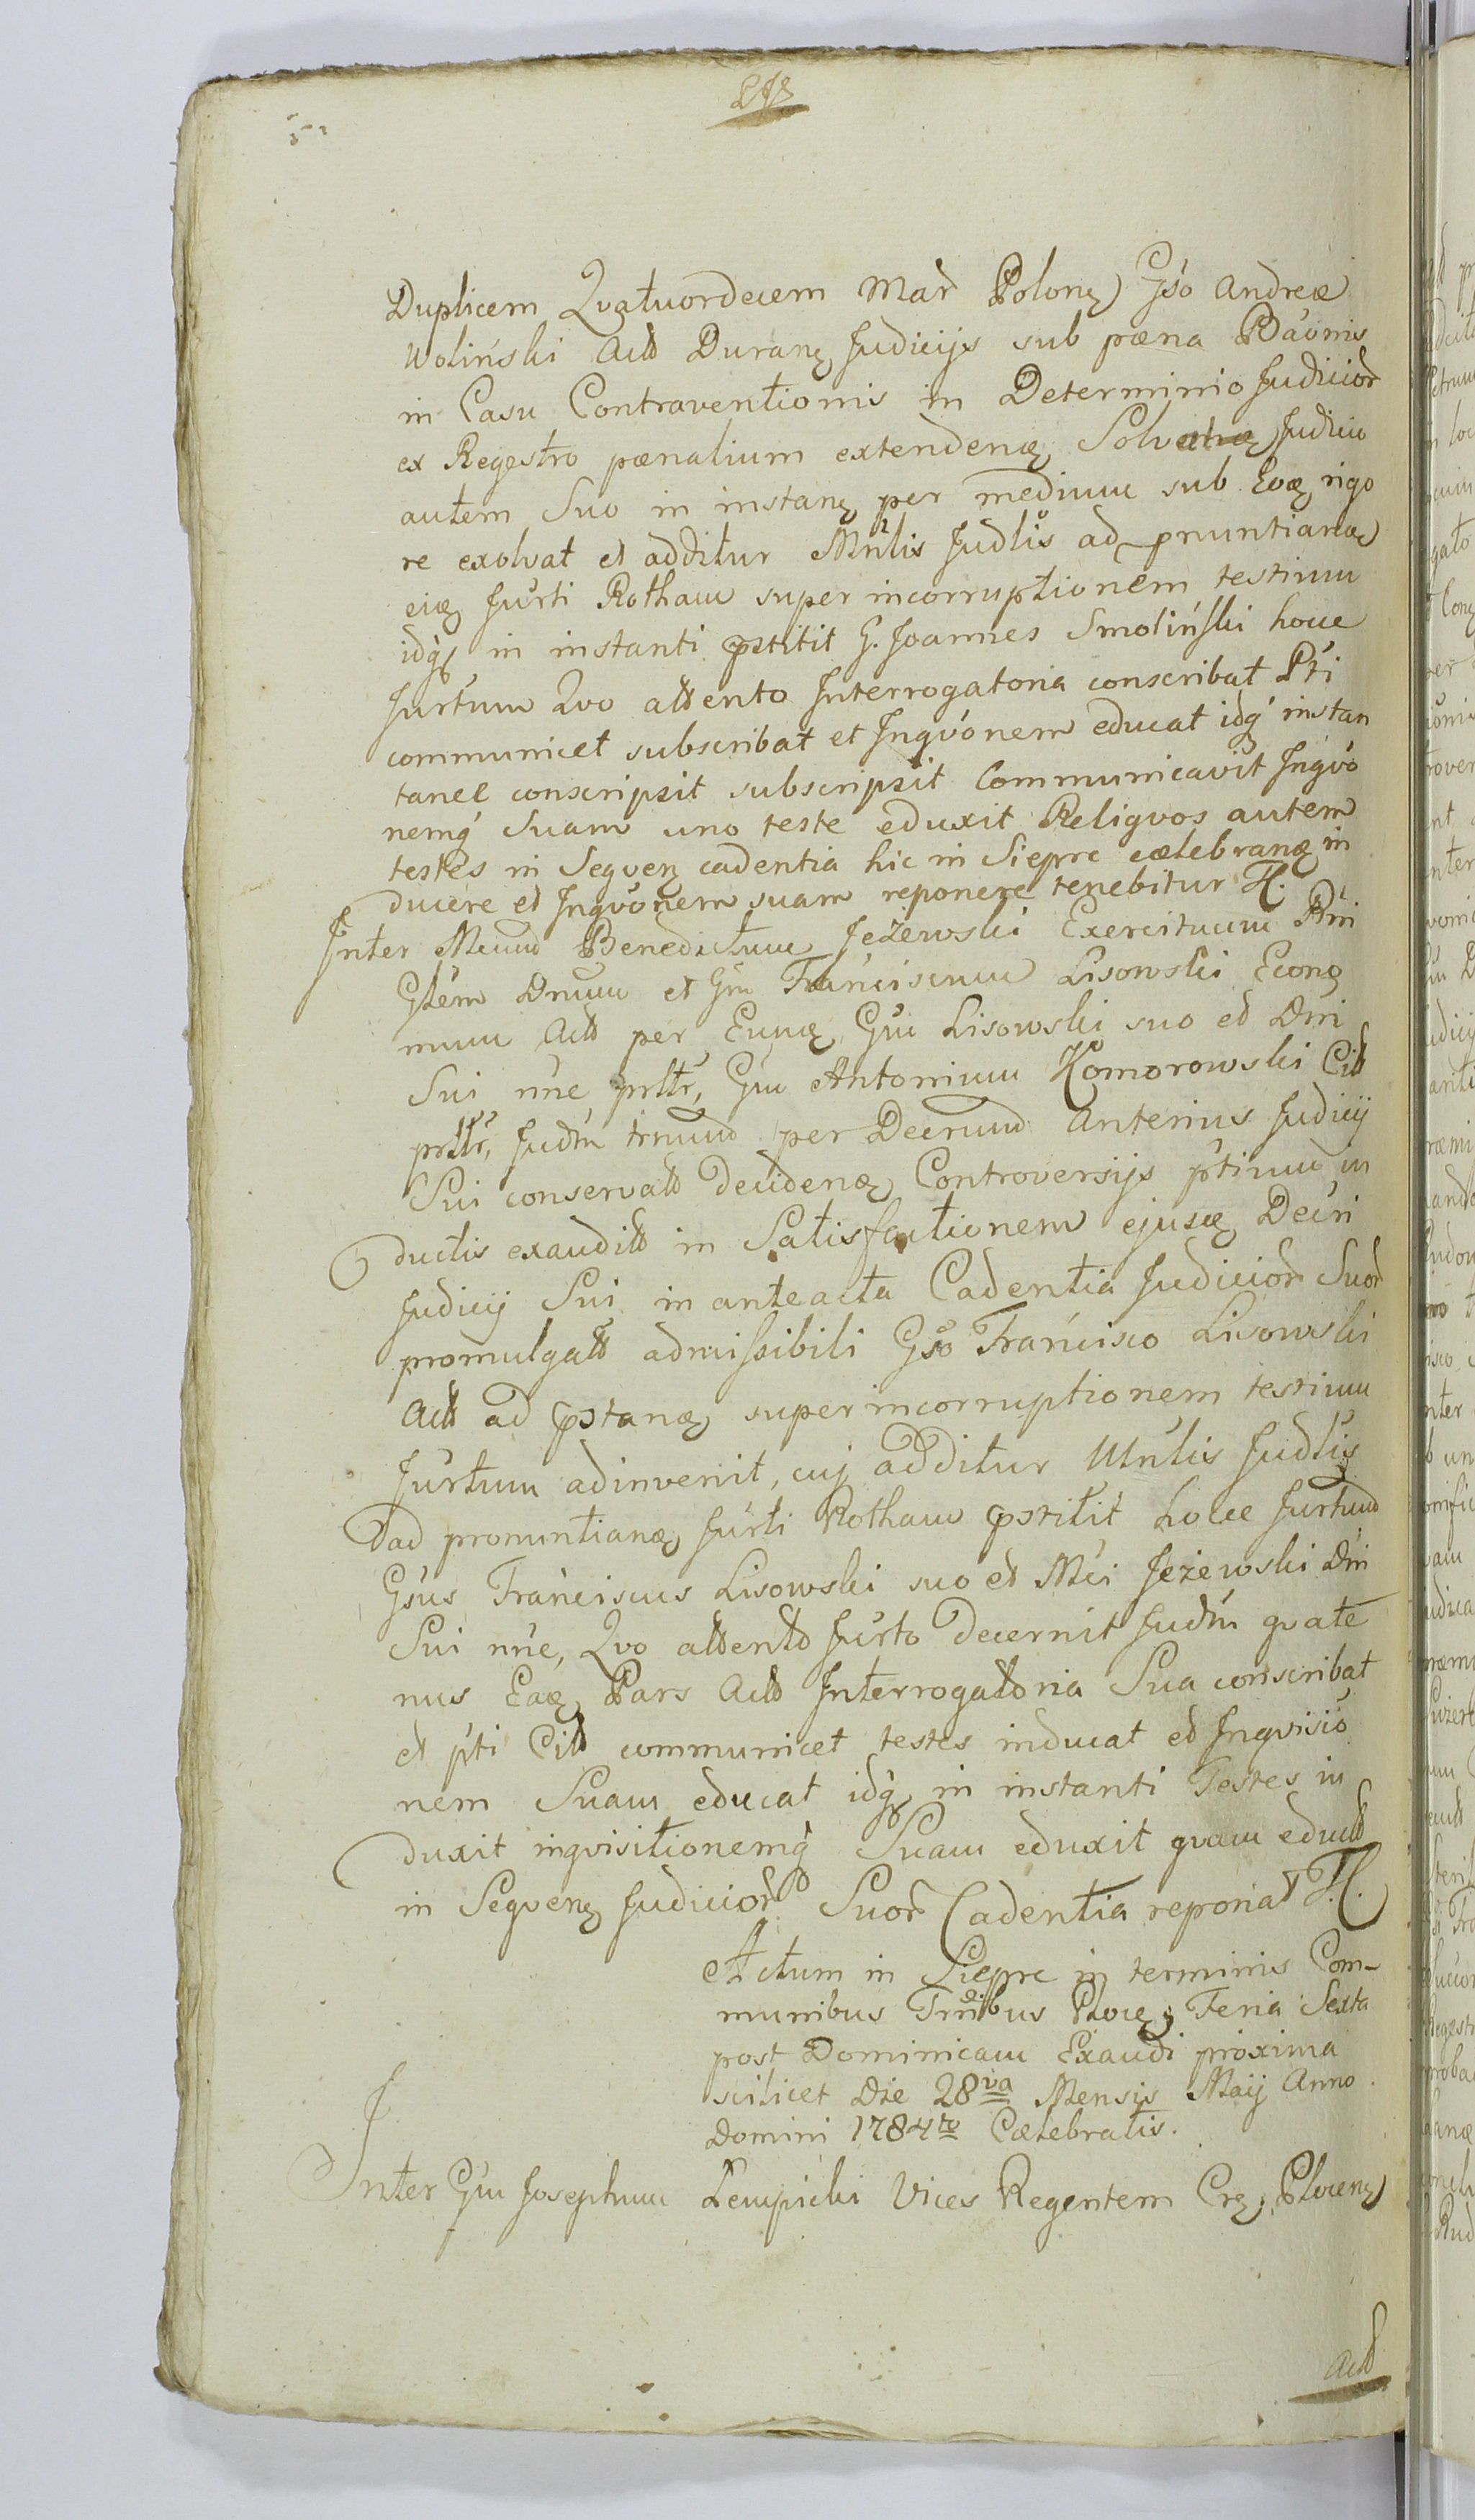 Duplicem Qvatuordecem Mar Polonę Gso Andreæ
Woliński Actt Duranę Judicijs sub pæna Báonis
in Casu Contraventionis in Determinio Judicior
ex Regestro pænalium extendenę Solv Judicio
autem Suo in instanę per medium sub Eoę rigo
re exolvat et additur Mnlis Judlis ad pnuntianę
eię Jurti Rotham super incorruptionem testium
idq in instanti pstitit G. Joannes Smoliński hocce
Jurtum Qvo attento Interrogatoria conscribat Pti
communicet subscribat et Inqvónem educat idq instan
tanee conscripsit subscripsit Communicavit Inqvó
nemq Suam uno teste eduxit Reliqvos autem
testes in Seqvenę cadentia hic in Sieprc cælebranę in
ducere et Inqvónem suam reponere tenebitur H.
Inter Mcum Benedictum Jeżewski Exercituum Rm
Glém Dnum et Gm Franciscum Lisowski Econo
mum Actt per Eunę Gm Lisowski suo et Dni
Sui nne prltr, Gm Antonium Komorowski Citt
prltr, Judm trmum per Decrum Anterius Judicij
Sui conservatt Decidenę Controversijs ptium in
ductis exauditt in Satisfactionem ejusę Decri
Judicij Sui in anteacta Cadentia Judicior Suor
promulgatt admissibili Gso Francisco Lisowski
Actt ad pstanę super incorruptionem testium
Jurtum adinvenit, cuj additur Mnlis Judlis
ad pronuntianę Jurti Rotham pstitit hocce Jurtum
Gsus Franciscus Lisowski suo et Mci Jeżewski Dni
Sui nne, Qvo attentt Jurto Decernit Judm qvate
nus Eaę Pars Actt Interrogatoria Sua conscribat
et pti Citt communicet testes inducat et Inqvisió
nem Suam educat idq in instanti Testes in
duxit inqvisitionemq Suam eduxit qvam eductt
in Seqvenę Judicior Suor Cadentia reponat H.
Actum in Sieprc in terminis Com-
munibus Trrlibus Plocę, Feria Sexta
post Dominicam Exaudi proxima
scilicet Die 28va Mensis Maij Anno
Domini 1784to Cælebratis.
Inter Gm Josephum Lempicki Vices Regentem Crę, Plocenę
Actt